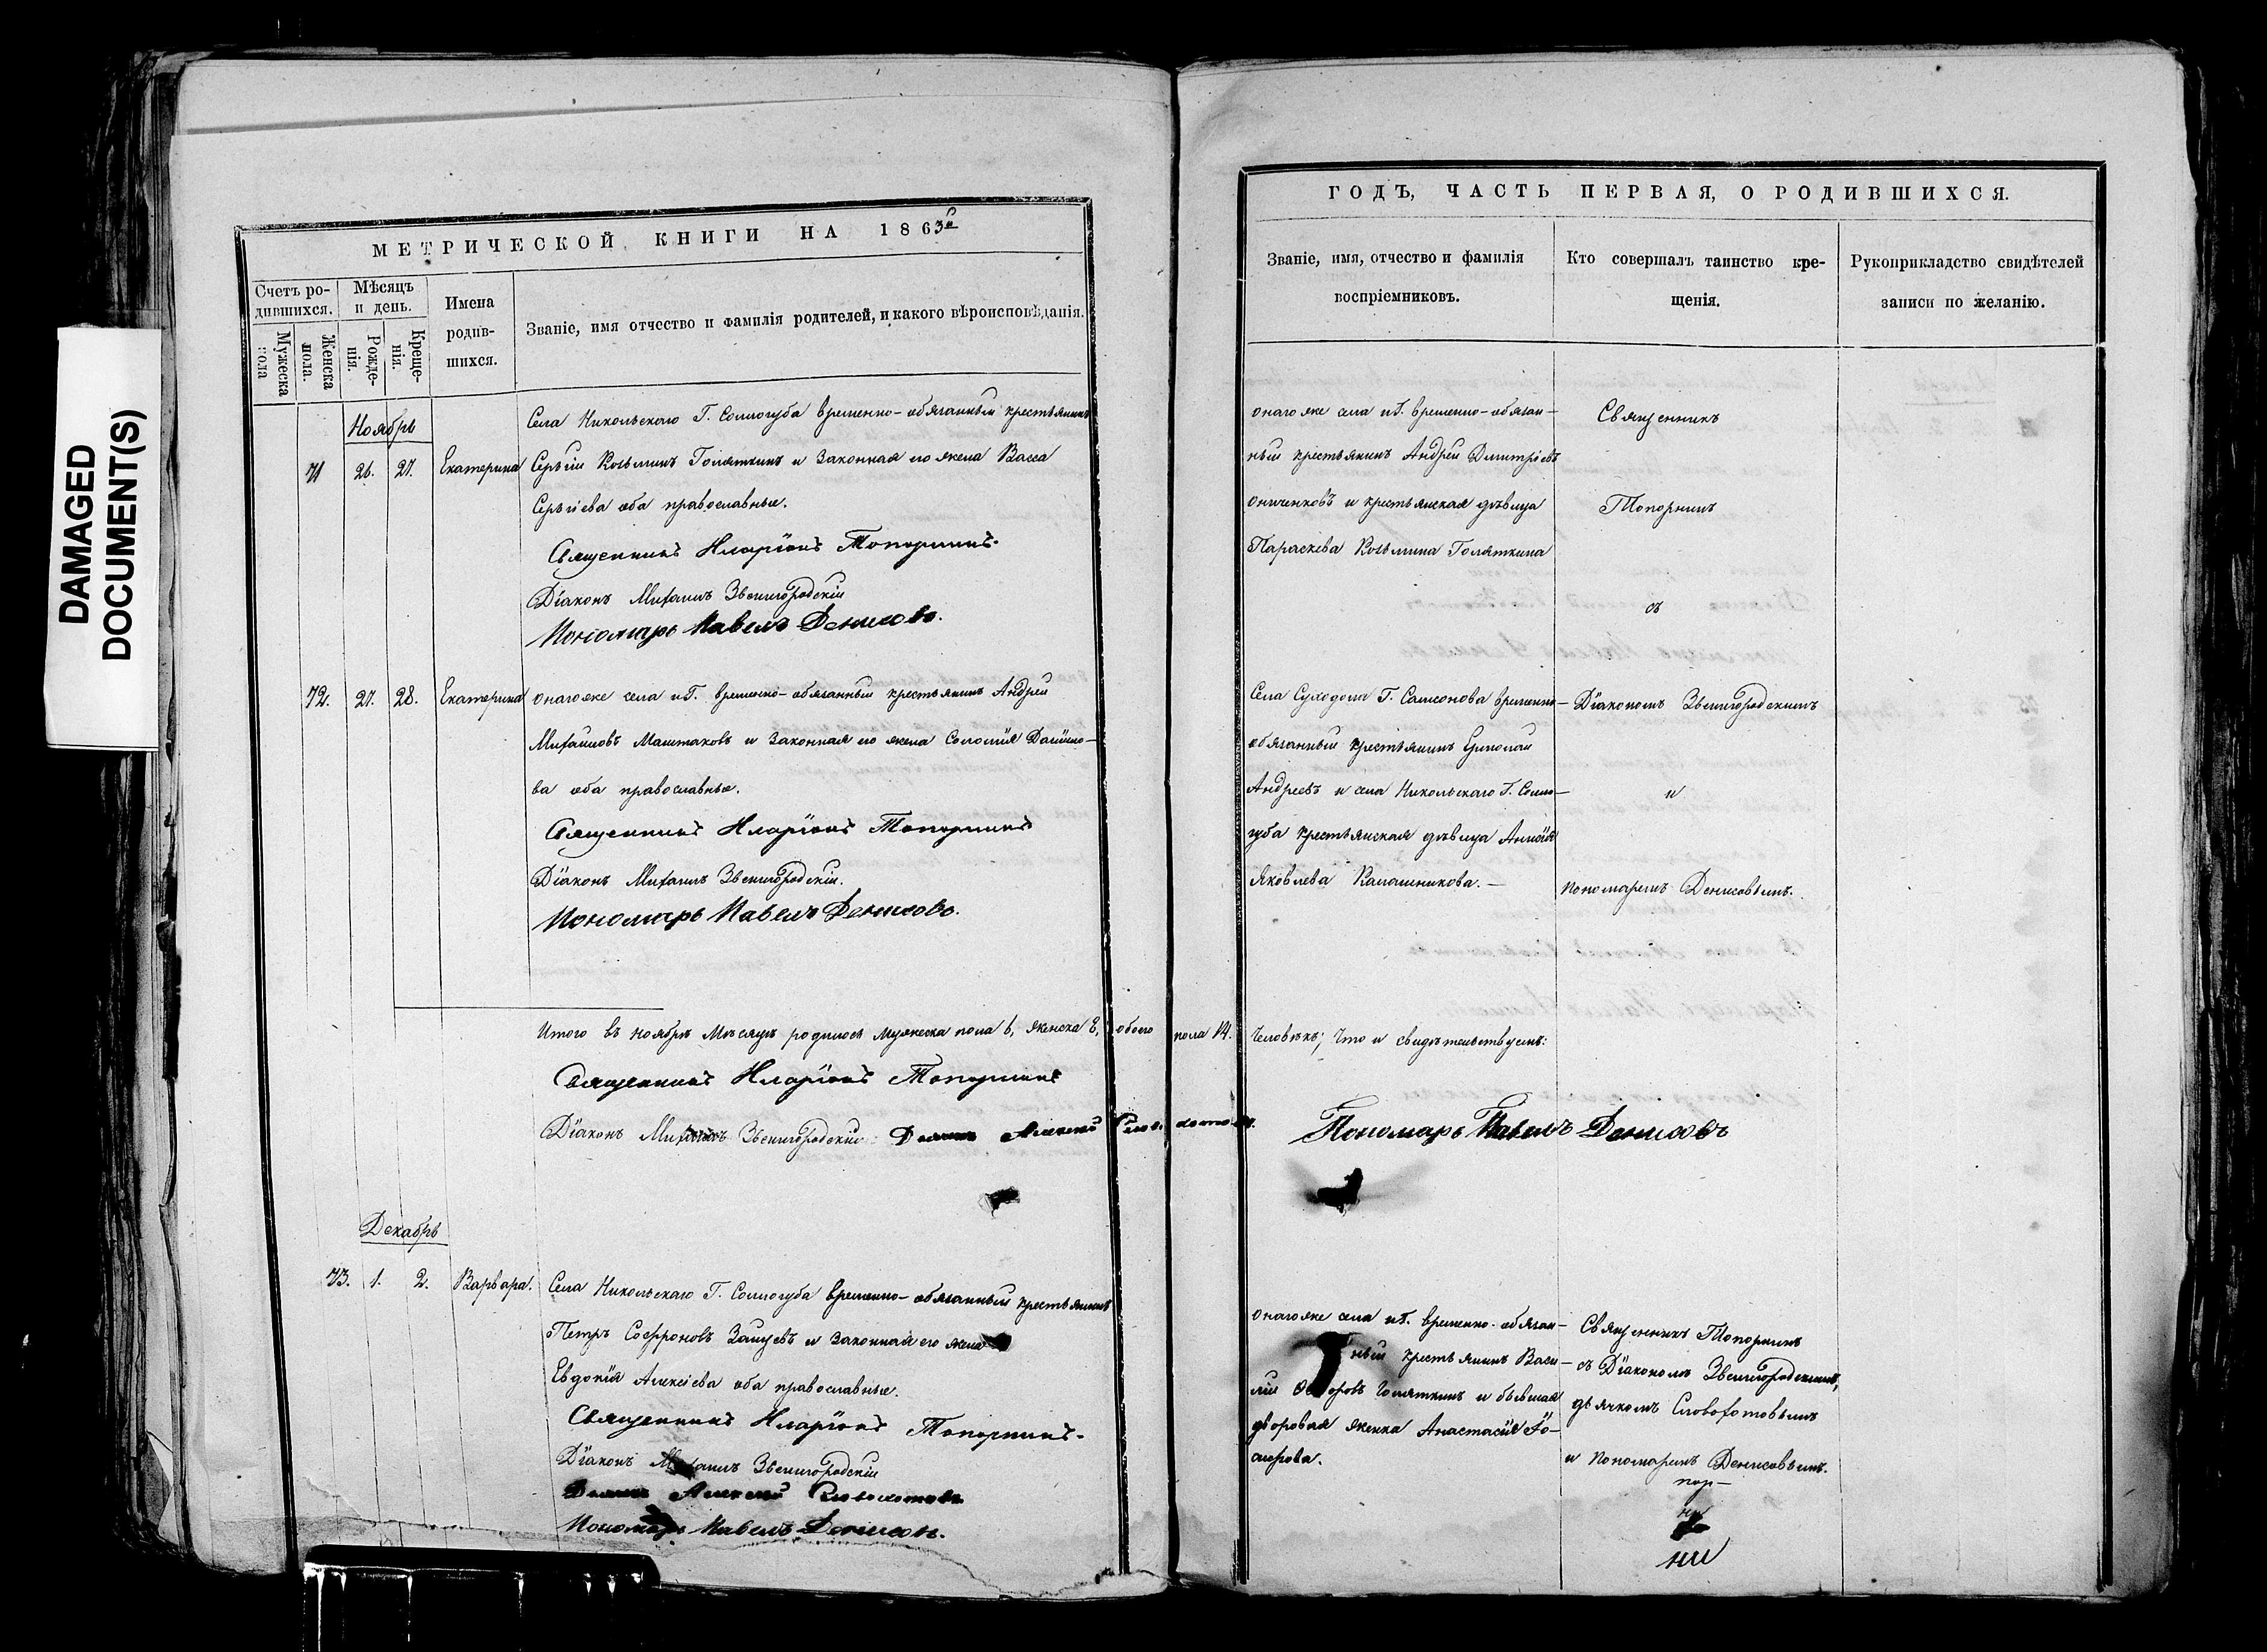 DAMAGED
DOCUMENT(S)
МЕТРИЧЕСКОЙ КНИГИ НА 1863й
Счетъ ро-
дившихся.
Мужеска
пола
Женска
пола.
Мѣсяцъ
и день.
Рожде-
нія.
Креще-
нія.
Имена
родив-
шихся.
Званіе, имя отчество и фамилія родителей, и какого вѣроисповѣданія.
Ноябрь
71 26. 27. Екатерина
Села Никольскаго Г. Соллогуба временно-обязанный крестьянинъ
Сергѣй Козьминъ Голяткинъ и законная его жена Васса
Сергіева оба православные.
Священникъ Иларіонъ Топорнинъ.
Діаконъ Михаилъ Звенигородскій
Пономарь Павелъ Денисовъ.
72. 27. 28. Екатерина
онагоже села и Г. временно-обязанный крестьянинъ Андрей
Михайловъ Маштаковъ и законная его жена Соломія
ва оба православные.
Священникъ Иларіонъ Топорнинъ
Діаконъ Михаилъ Звенигородскій.
Пономарь Павелъ Денисовъ.
Итого въ ноябрѣ мѣсяцѣ родилося мужеска пола 6, женска 8, обоего пола 14.
Священникъ Иларіонъ Топорнинъ
Діаконъ Михаилъ Звенигородскій Дьячекъ Алексѣй Словохотовъ.
Декабрь
73. 1. 2. Варвара.
Села Никольскаго Г. Соллогуба временно-обязанный крестьянинъ
Петръ Софроновъ Зайцевъ и законная его жена
Евдокія Алексіева оба православные.
Священникъ Иларіонъ Топорнинъ.
Діаконъ Михаилъ Звенигородскій
Дьячекъ Алексѣй Словохотовъ
Пономарь Павелъ Денисовъ.
ГОДЪ, ЧАСТЬ ПЕРВАЯ, О РОДИВШИХСЯ.
Званіе, имя, отчество и фамилія
воспріемниковъ.
Кто совершалъ таинство кре-
щенія.
Рукоприкладство свидѣтелей
записи по желанію.
онагоже села и Г. временно-обязан-
ный крестьянинъ Андрей Дмитріевъ
и крестьянская дѣвица
Параскева Козьмина Голяткина
Священникъ
Топорнинъ
съ
Села Суходола Г. Самсонова временно-
обязанный крестьянинъ
Андреевъ и села Никольскаго Г. Солло-
губа крестьянская дѣвица
Яковлева Калашникова.-
Діакономъ Звенигородскимъ
и
пономаремъ Денисовымъ.
Человѣкъ; Что и свидѣтельствуемъ:
Пономарь Павелъ Денисовъ
онагоже села и Г. временно-обязан-
ный крестьянинъ Васи-
лій Голяткинъ и бывшая
дворовая женка Анастасія Ѳо-
Священникъ Топорнинъ
съ Діакономъ Звенигородскимъ,
дьячкомъ Словохотовымъ
и пономаремъ Денисовымъ.
пор-
ни